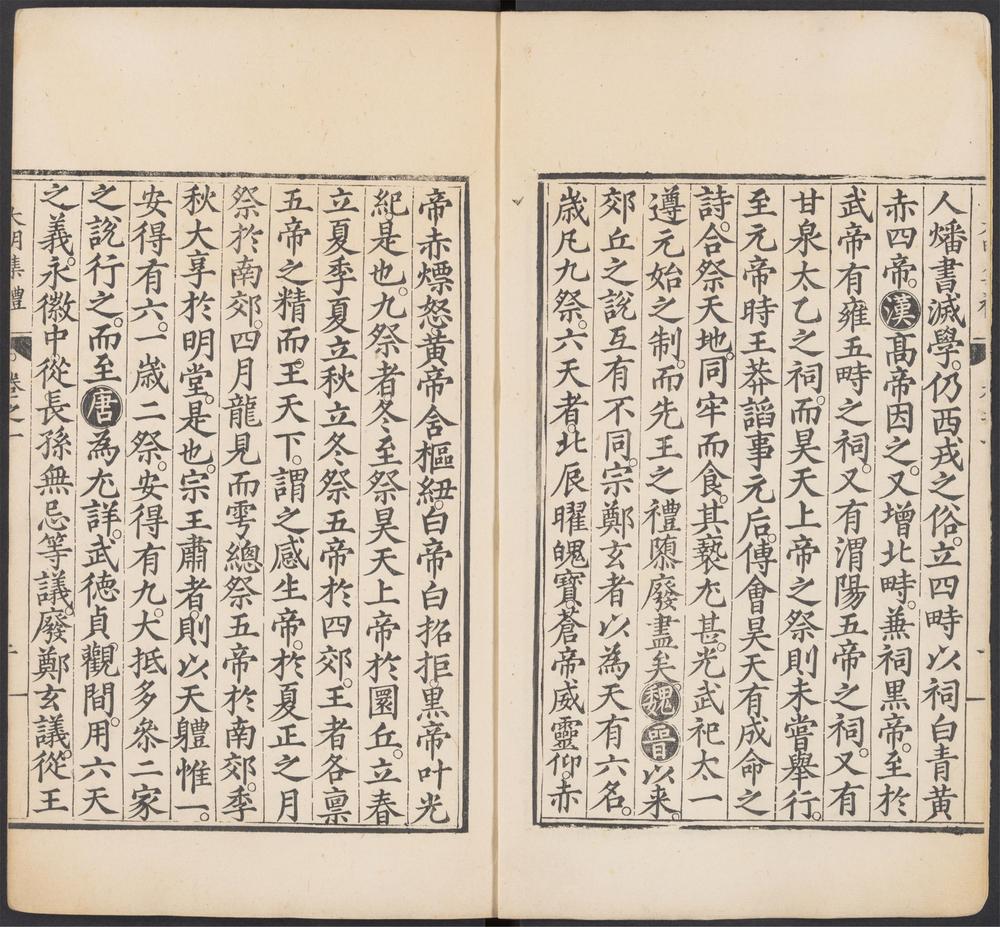 人燔書滅學。仍西戎之俗。立四畤以祠白青黃
赤四帝。漢高帝因之。又增北畤。兼祠黑帝。至於
武帝有雍五畤之祠。又有渭陽五帝之祠。又有
甘泉太乙之祠。而昊天上帝之祭則未嘗舉行。
至元帝時王莽謟事元后。傅會昊天有成命之
詩。合祭天地。同牢而食。其褻尤甚。光武祀太一
遵元始之制。而先王之禮隳廢盡矣魏晋以来
郊丘之說互有不同。宗鄭玄者以為天有六名。
歲凡九祭。六天者。北辰曜魄寶。蒼帝威靈仰。赤
帝赤熛怒。黃帝含樞紐。白帝白招拒。黑帝叶光
紀是也。九祭者冬至祭昊天上帝於圜丘。立春
立夏季夏立秋立冬祭五帝於四郊。王者各禀
五帝之精而。王天下。謂之感生帝。於夏正之月
祭於南郊。四月龍見而雩總祭五帝於南郊。季
秋大享於明堂。是也。宗王肅者。則以天軆惟一。
安得有六。一歲二祭。安得有九。大抵多叅二家
之說行之。而至唐為尤詳。武德貞觀間。用六天
之義。永徽中從長孫無忌等議。廢鄭玄議。從王
大明集禮 卷之一